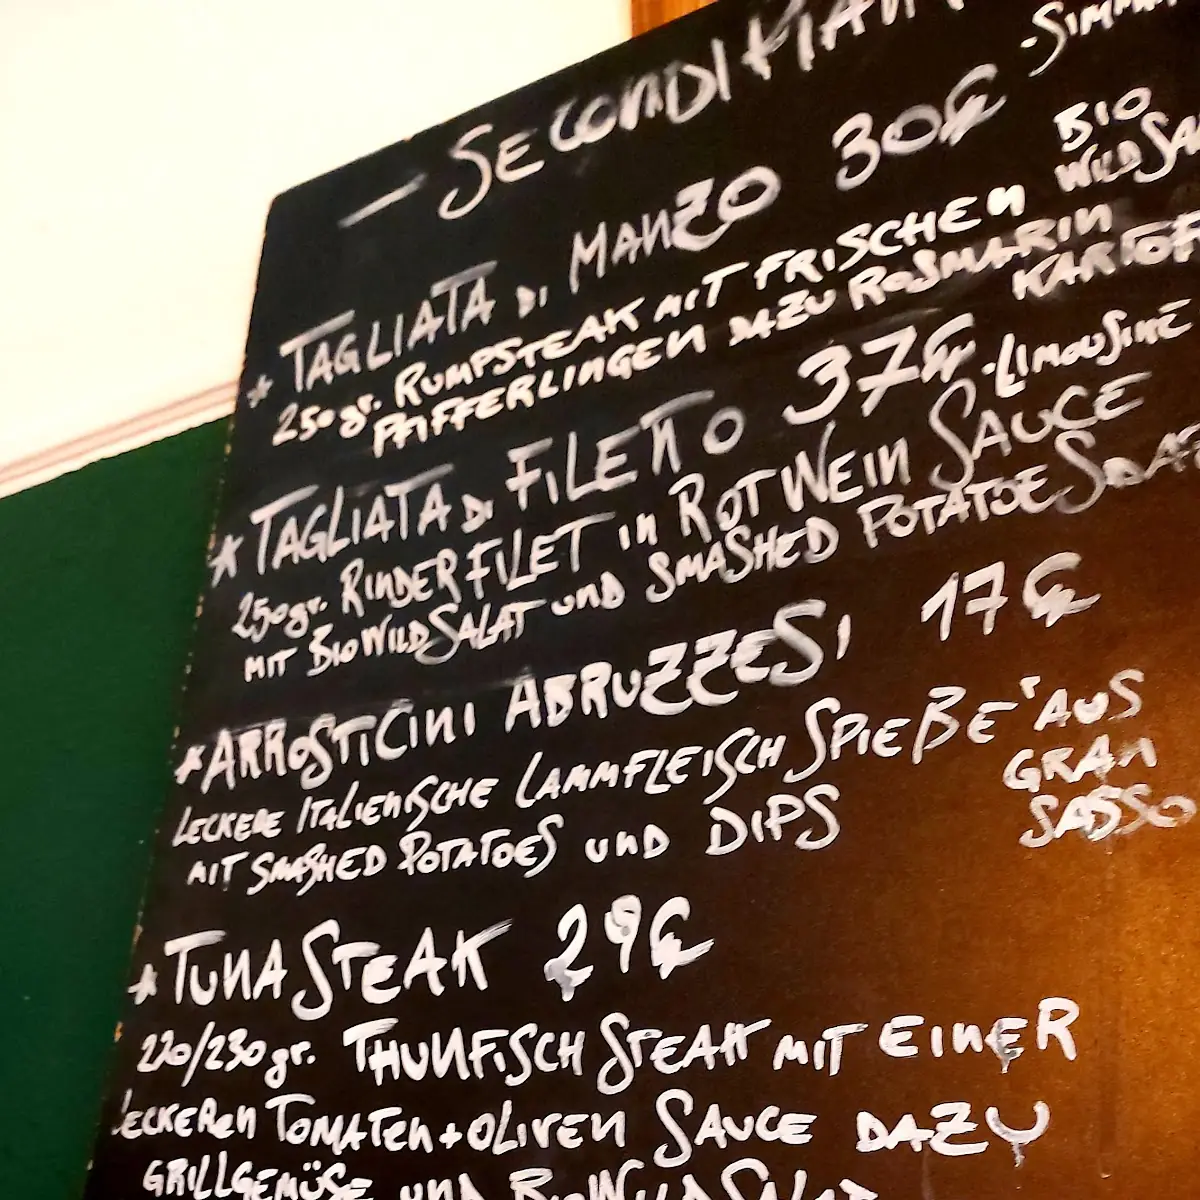 - SECONDI PIATTI
* TAGLIATA DI MANZO 30€
250gr. RUMPSTEAK MIT FRISCHEN BIO
PFIFFERLINGEN DAZU ROSMARIN
* TAGLIATA DI FILETTO 37€ -LIMOUSINE
250gr. RINDERFILET IN ROTWEIN SAUCE
MIT BIO WILDSALAT UND SMASHED POTATOES
*ARROSTICINI ABRUZZESI 17€
LECKERE ITALIENISCHE LAMMFLEISCH SPIEßE AUS
GRAN
SASSO
MIT SMASHED POTATOES UND DIPS
*TUNA STEAK 29€
220/230gr. THUNFISCH STEAK MIT EINER
LECKEREN TOMATEN+OLIVEN SAUCE DAZU
GRILLGEMÜSE UND BIOWILDSALAT